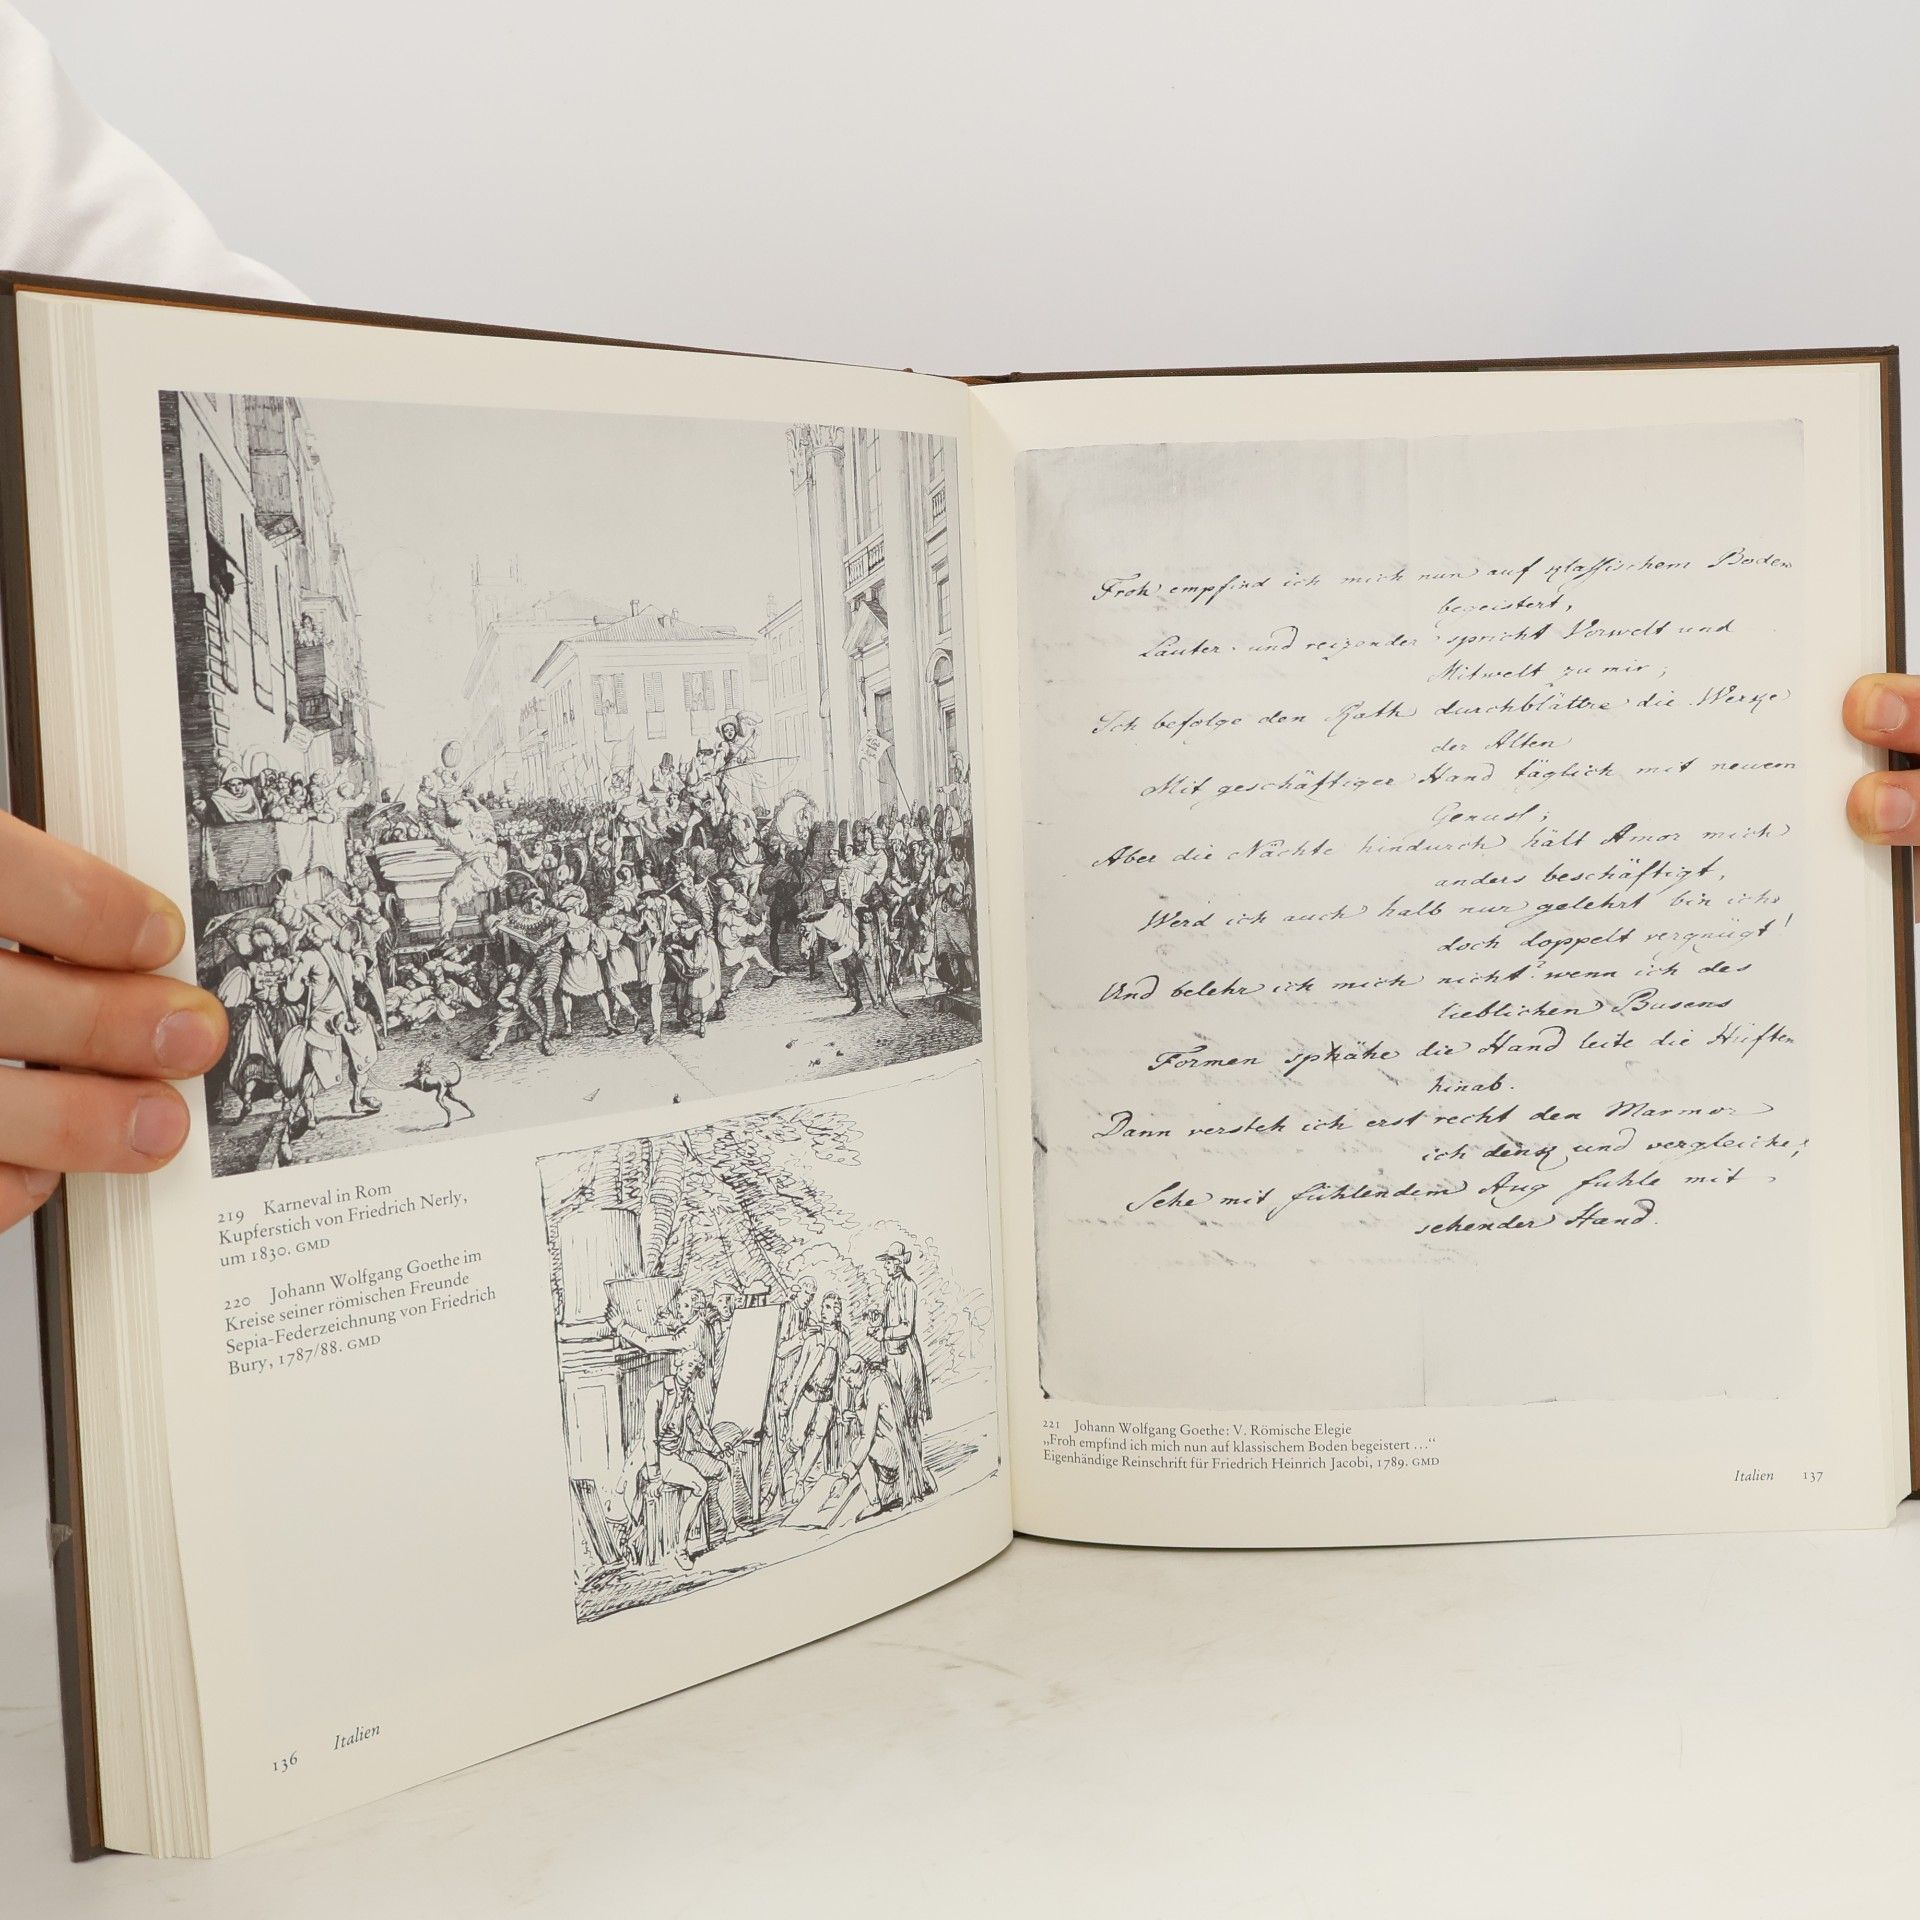 219 Karneval in Rom
Kupferstich von Friedrich Nerly,
um 1830. GMD
220 Johann Wolfgang Goethe im
Kreise seiner römischen Freunde
Sepia-Federzeichnung von Friedrich
Bury, 1787/88. GMD
136 Italien
Froh empfind ich mich nun auf klassischem Boden
begeistert,
Lauter und reizender spricht Vorwelt und
Mitwelt zu mir;
Ich befolge den Rath durchblättre die Werke
der Alten
Mit geschäftiger Hand täglich mit neuem
Genuß;
Aber die Nächte hindurch hält Amor mich
anders beschäftigt,
Werd ich auch halb nur gelehrt bin ich
doch doppelt vergnügt!
Und belehr ich mich nicht? wenn ich des
lieblichen Busens
Formen spähe die Hand leite die Hüften
hinab.
Dann versteh ich erst recht den Marmor
ich denk und vergleiche;
Sehe mit fühlendem Aug fühle mit
sehender Hand.
221 Johann Wolfgang Goethe: V. Römische Elegie
„Froh empfind ich mich nun auf klassischem Boden begeistert ...“
Eigenhändige Reinschrift für Friedrich Heinrich Jacobi, 1789. GMD
Italien 137